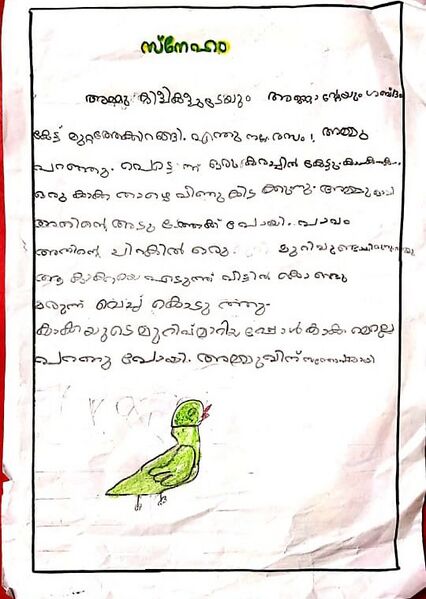 സ്നേഹം
അമ്മു കിളികളുടേയും അണ്ണാന്റേയും ശബ്ദം
കേട്ട് മുറ്റത്തേക്കിറങ്ങി. എന്തു നല്ല രസം! അമ്മു
പറഞ്ഞു. പെട്ടെന്ന് ഒരു കരച്ചിൽ കേട്ടു.
ഒരു കാക്ക താഴെ വീണു കിട ക്കുന്നു. അമ്മു
അതിന്റെ അടു ത്തേക്ക് പോയി. പാവം
അതിന്റെ ചിറകിൽ ഒരു മുറിവുണ്ടായിരുന്നു
ആ കാക്കയെ എടുത്ത് വീട്ടിൽ കൊ ണ്ടു
മരുന്ന് വെച്ച് കൊടു ത്തു.
കാക്കയുടെ മുറിവ് മാറിയ പ്പോൾ കാക്ക
പറന്നു പോയി. അമ്മുവിന് സന്തോഷമായി